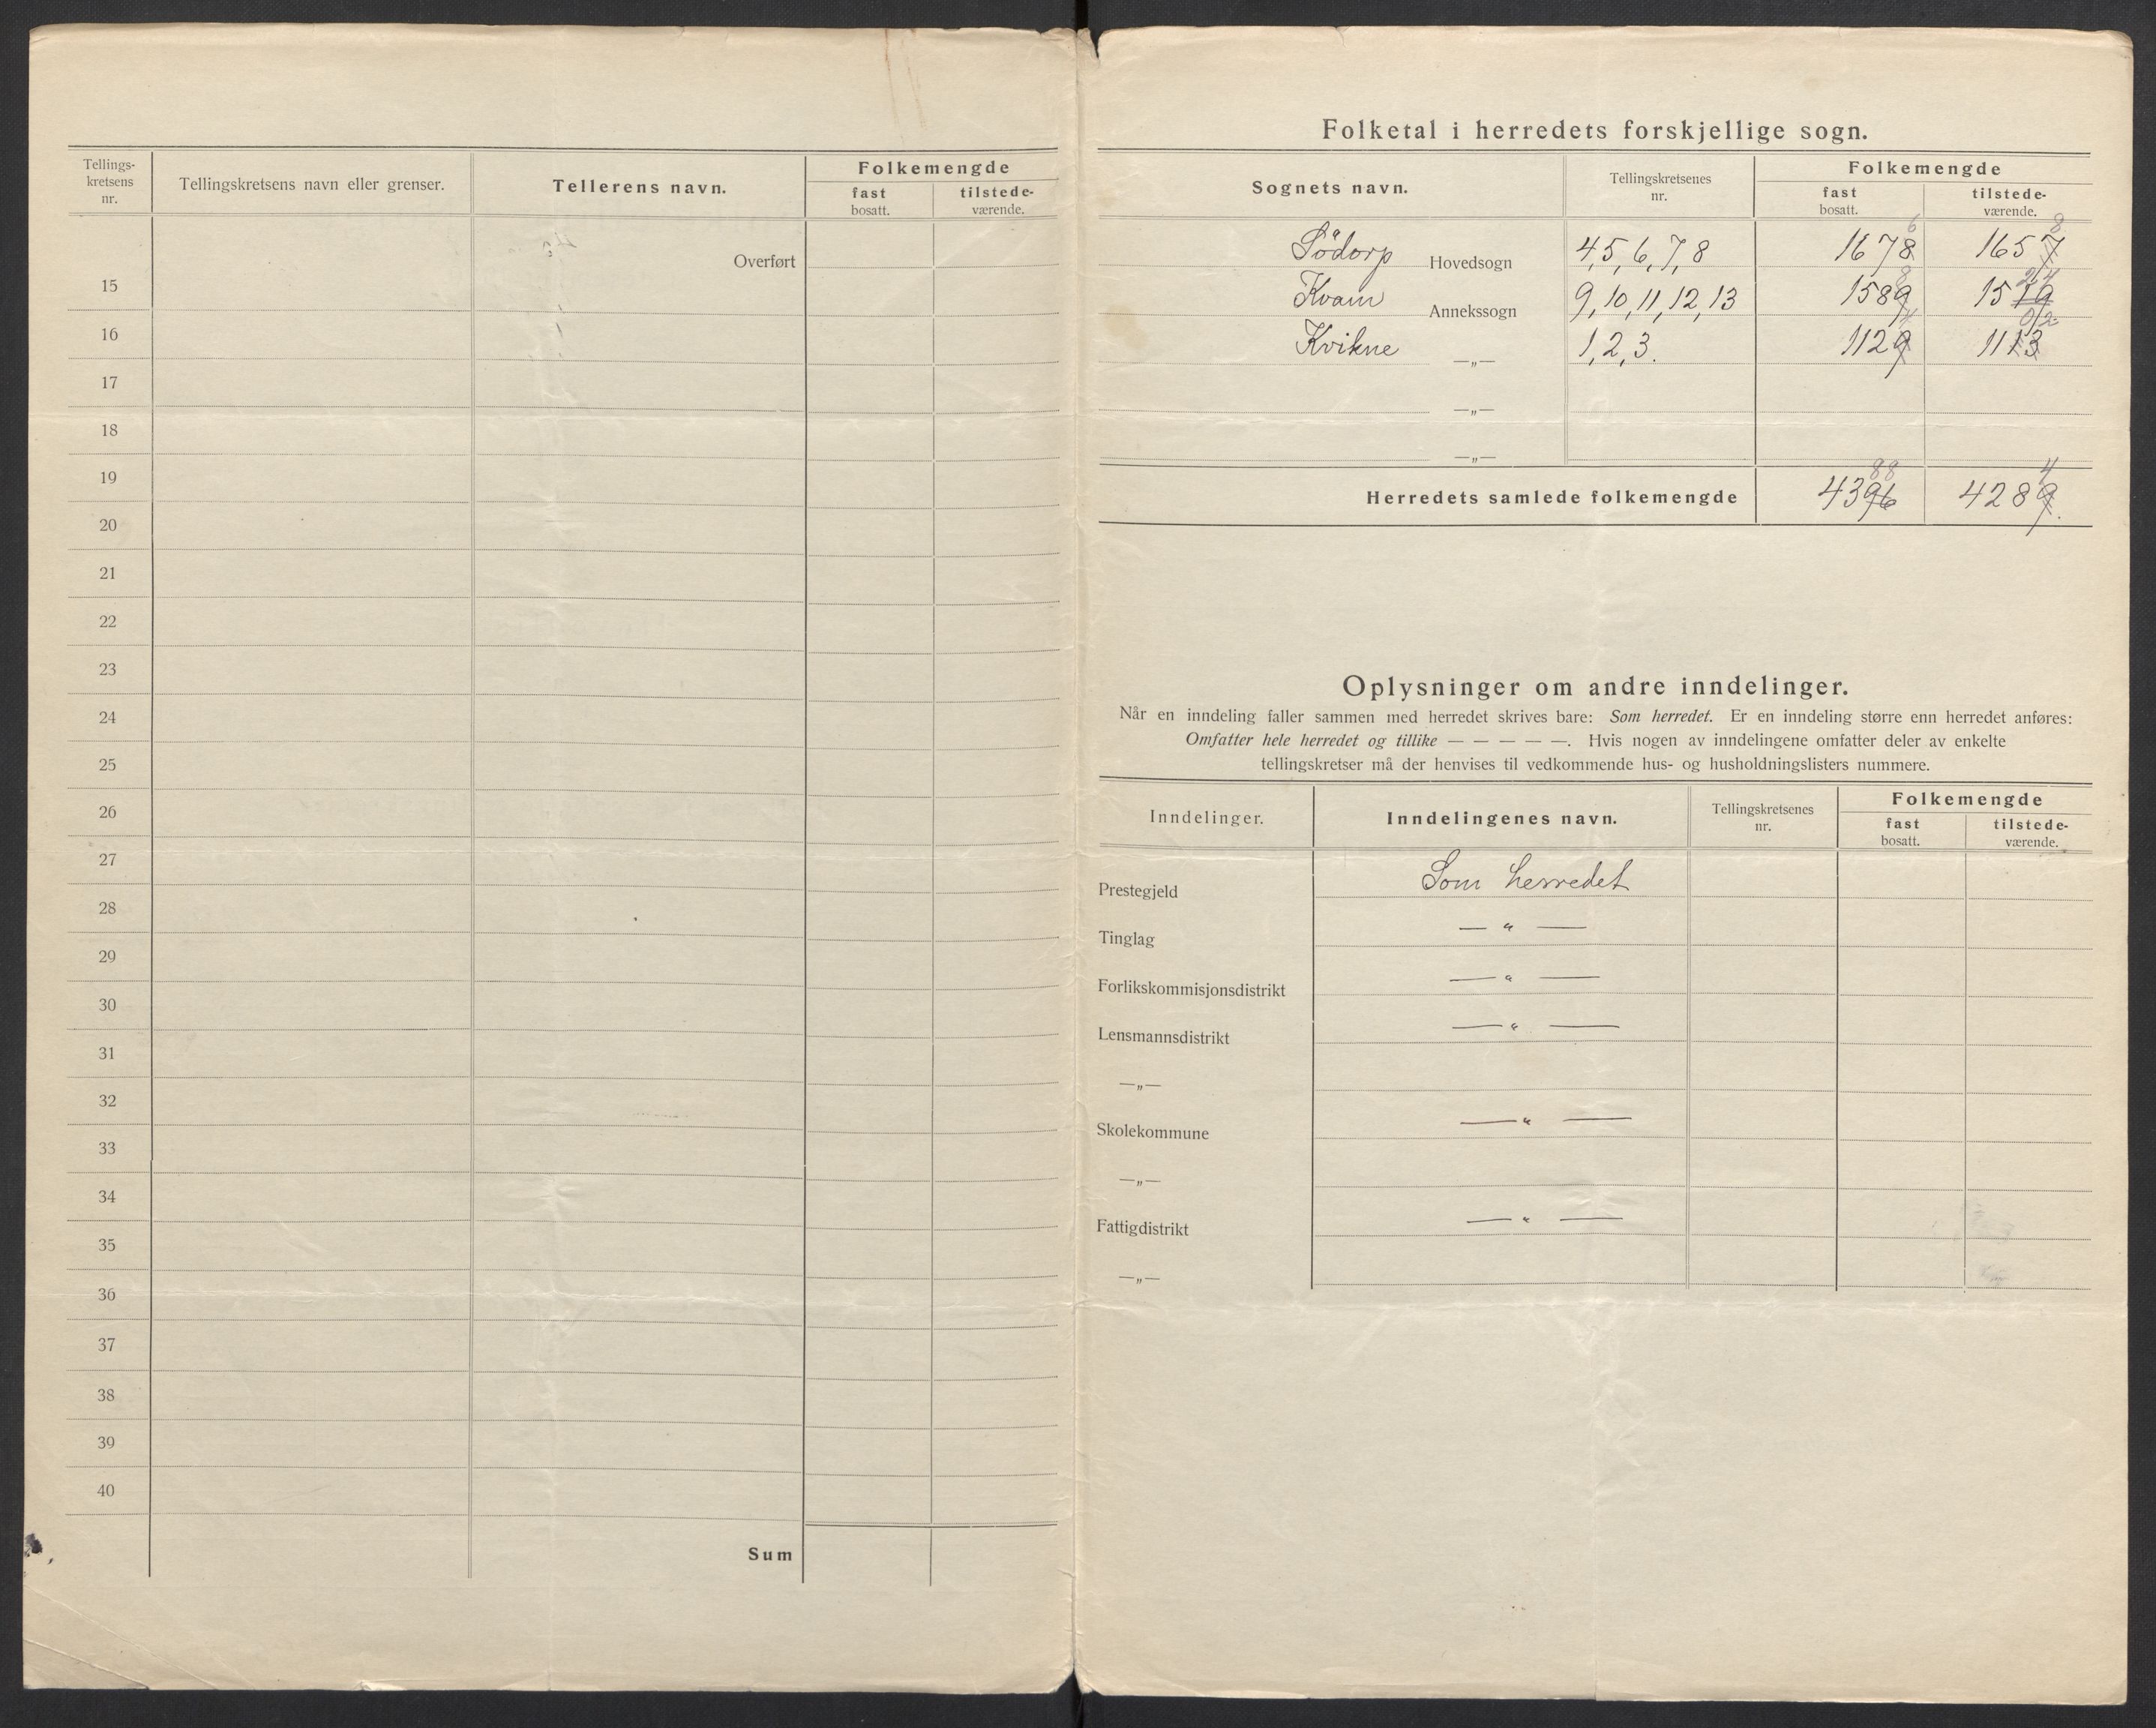 Tellings-
kretsens
nr.
Tellingskretsens navn eller grenser.
Tellerens navn.
Folkemengde
fast
bosatt.
tilstede-
værende.
Overført
15
16
17
18
19
20
21
22
23
24
25
26
27
28
29
30
31
32
33
34
35
36
37
38
39
40
Sum
Folketal i herredets forskjellige sogn.
Sognets navn.
Tellingskretsenes
nr.
Folkemengde
fast
bosatt.
tilstede-
værende.
6 8
Södorp Hovedsogn 4,5,6,7,8 1678 1657
8 24
Kvam Annekssogn 9,10,11,12,13 1589 1519
4 02
Kvikne —„— 1,2,3. 1129 1113
—„—
—„—
88 4
Herredets samlede folkemengde 4396 4289.
Oplysninger om andre inndelinger.
Når en inndeling faller sammen med herredet skrives bare: Som herredet. Er en inndeling større enn herredet anføres:
Omfatter hele herredet og tillike — — — — —. Hvis nogen av inndelingene omfatter deler av enkelte
tellingskretser må der henvises til vedkommende hus- og husholdningslisters nummere.
Inndelinger.
Inndelingenes navn.
Tellingskretsenes
nr.
Folkemengde
fast
bosatt.
tilstede-
værende.
Prestegjeld Som herredet
Tinglag — " —
Forlikskommisjonsdistrikt — " —
Lensmannsdistrikt — " —
—„—
Skolekommune — " —
—„—
Fattigdistrikt — " —
—„—